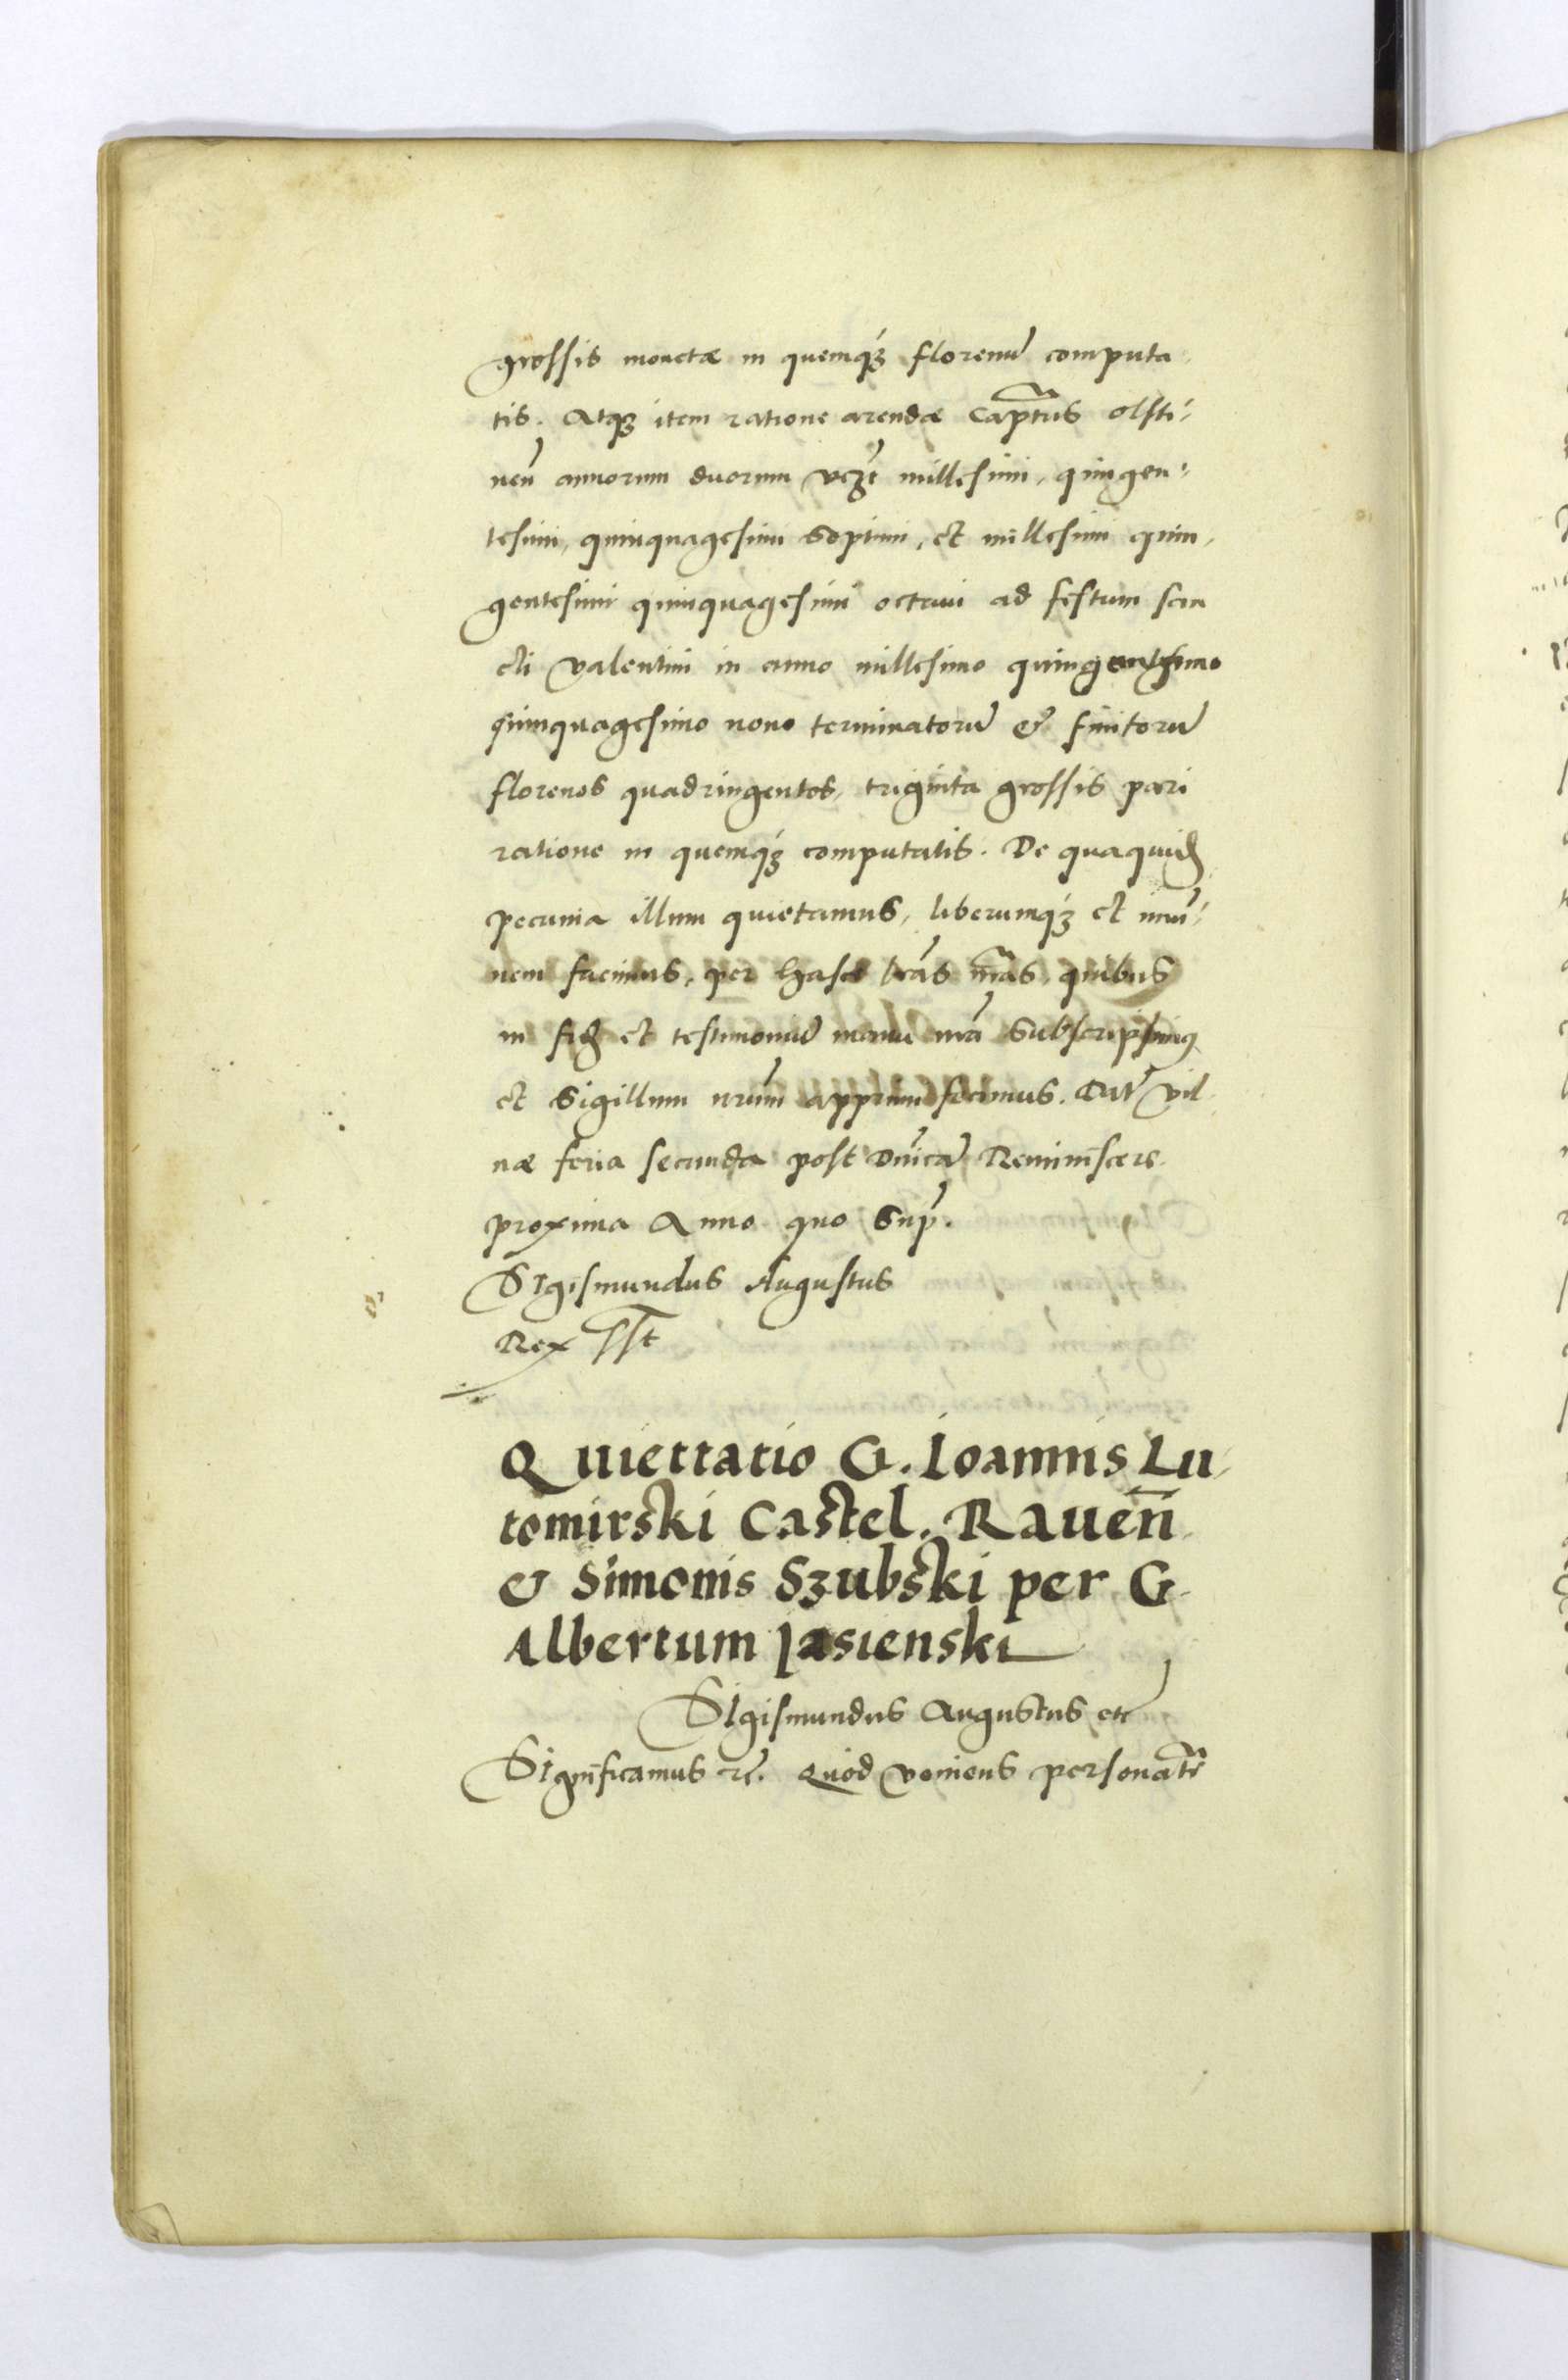 grossis monetæ in quemq́ꝫ florenũ computa-
tis. Atqꝫ item ratione arendæ Cap̃tus olsti-
neñ annorum duorum vcꝫt millesimi, quingen-
tesimi, quinquagesimi Septimi, et millesimi quin-
gentesimi quinquagesimi octaui ad festum san
cti Valentini in anno millesimo quingentesimo
quinquagesimo nono terminatorũ & finitorũ
florenos quadringentos, triginta grossis pari
ratione in quemq́ꝫ computatis. De quaquidꝫ
pecunia illum quietamus, liberumq́ꝫ et imu-
nem facimus, per hasce lr̃as nr̃as, quibus
in fidꝫ et testimoniũ manu nr̃a Subscripsimꝰ
et Sigillum nr̃um appnmi fecimus. Dat̃ Vil-
næ feria secunda post Dnicã Reminiscere
proxima Anno quo Sup̃.
Sigismundus Augustus
Rex sst
Quiettatio G. Ioannis Lu-
tomirski Castel. Raueñ
& Simonis Szubski per G
Albertum Jasienski
Sigismundus Augustus etc̃
Significamus rc̃. Quod veniens personalr̃